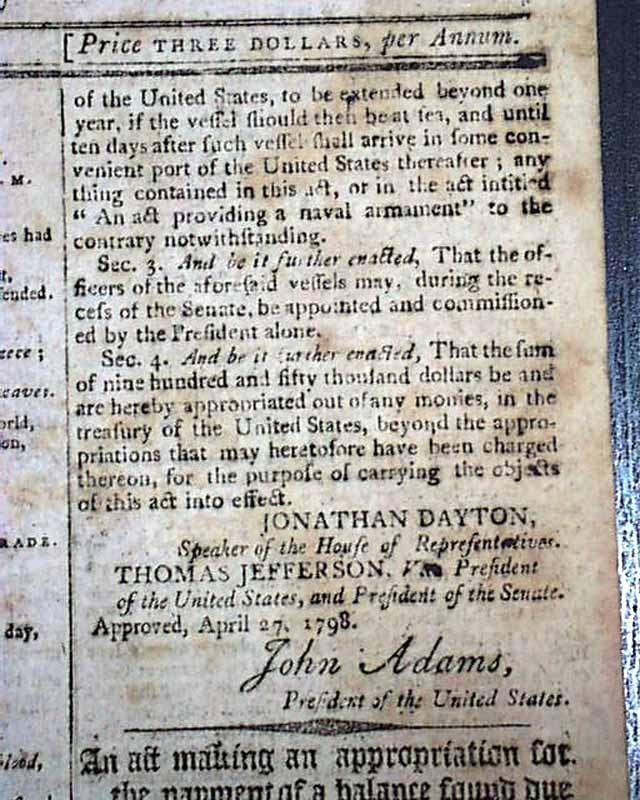 [Price THREE DOLLARS, per Annum.
of the United States, to be extended beyond one
year, if the veſſel ſhould then be at ſea, and until
ten days after ſuch veſſel ſhall arrive in ſome con-
venient port of the United States thereafter ; any
thing contained in this act, or in the act intitled
“ An act providing a naval armament” to the
contrary notwithſtanding.
Sec. 3. And be it further enacted, That the of-
ficers of the aforeſaid veſſels may, during the re-
ceſs of the Senate, be appointed and commiſſion-
ed by the Preſident alone.
Sec. 4. And be it further enacted, That the ſum
of nine hundred and fifty thouſand dollars be and
are hereby appropriated out of any monies, in the
treaſury of the United States, beyond the appro-
priations that may heretofore have been charged
thereon, for the purpoſe of carrying the objects
of this act into effect.
JONATHAN DAYTON,
Speaker of the Houſe of Repreſentatives.
THOMAS JEFFERSON, Vice Preſident
of the United States, and Preſident of the Senate.
Approved, April 27, 1798.
John Adams,
Preſident of the United States.
An act making an appropriation for
the payment of a balance found due
M.
es had
ended.
eece ;
leaves.
orld,
on,
RADE.
day,
blood,